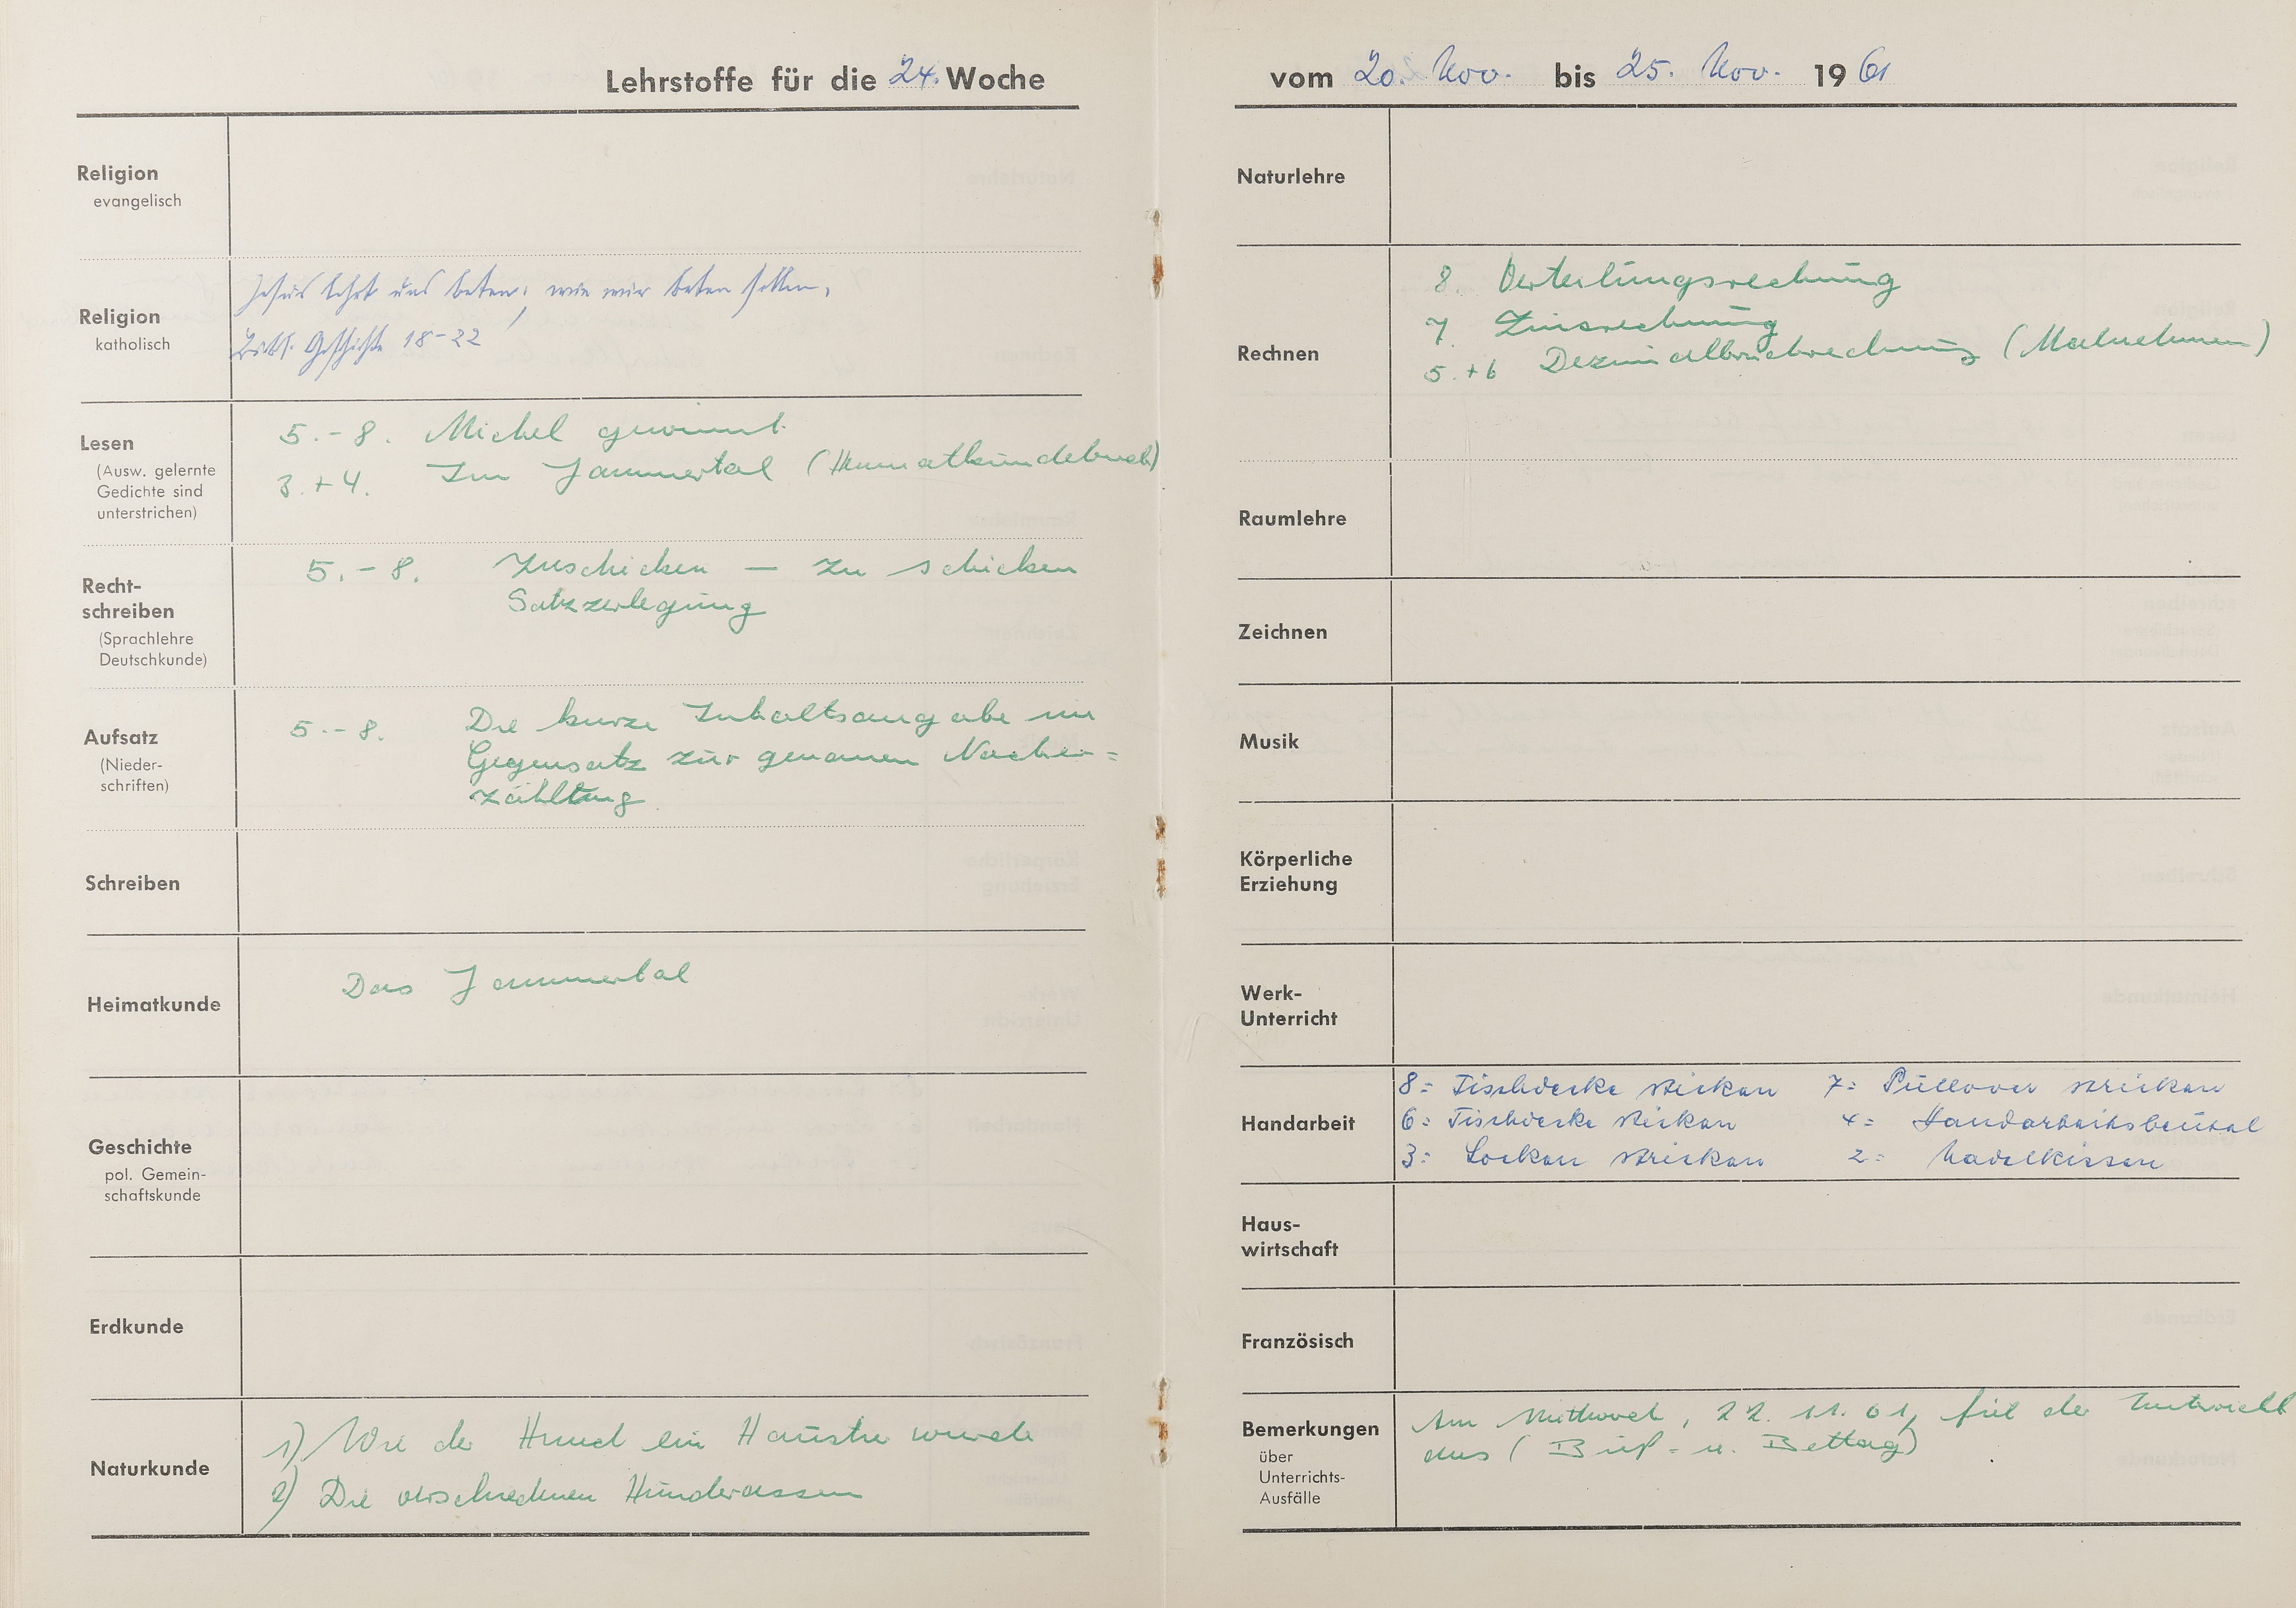 Lehrstoffe für die 24. Woche
Religion
evangelisch
Religion
katholisch
Jesus lehrt uns beten: wie wir beten sollen,
Bibl. Geschichte 18-22
Lesen
(Ausw. gelernte
Gedichte sind
unterstrichen)
5.-8. Michel gewinnt.
3.+4. Im Jammertal (Heimatkundebuch)
Recht-
schreiben
(Sprachlehre
Deutschkunde)
5.-8. Zuschicken — zu schicken
Satzzerlegung
Aufsatz
(Nieder-
schriften)
5.-8. Die kurze Inhaltsangabe im
Gegensatz zur genauen Nacher=
zählung.
Schreiben
Heimatkunde
Das Jammertal
Geschichte
pol. Gemein-
schaftskunde
Erdkunde
Naturkunde
1) Wie der Hund ein Haustier wurde
2) Die verschiedenen Hunderassen
vom 20. Nov. bis 25. Nov. 1961
Naturlehre
Rechnen
8. Verteilungsrechnung
7. Zinsrechnung
5.+6 Dezimalbruchrechnung (Malnehmen)
Raumlehre
Zeichnen
Musik
Körperliche
Erziehung
Werk-
Unterricht
Handarbeit
8= Tischdecke sticken 7= Pullover stricken
6= Tischdecke sticken 4= Handarbeitsbeutel
3= Socken stricken 2= Nadelkissen
Haus-
wirtschaft
Französisch
Bemerkungen
über
Unterrichts-
Ausfälle
Am Mittwoch, 22. 11. 61, fiel der Unterricht
aus (Buß- u. Bettag)